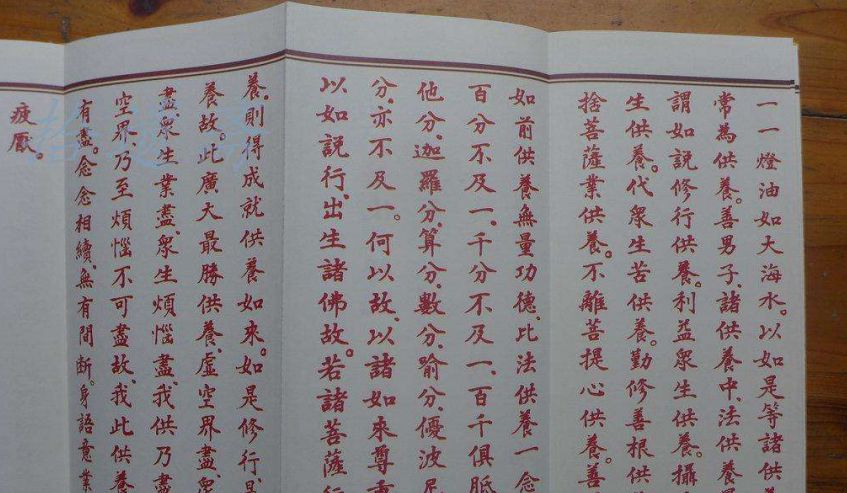 一一燈油如大海水。以如是等諸供
常為供養。善男子、諸供養中、法供養
謂如說修行供養。利益眾生供養。攝
生供養。代眾生苦供養。勤修善根供
捨菩薩業供養。不離菩提心供養。善
如前供養無量功德。比法供養一念
百分不及一、千分不及一、百千俱胝
他分、迦羅分、算分、數分、喻分、優波尼
分、亦不及一。何以故、以諸如來尊
以如說行、出生諸佛故。若諸菩薩行
養。則得成就供養如來。如是修行、是
養故。此廣大最勝供養、虛空界盡、眾
盡眾生業盡、眾生煩惱盡、我供乃盡
空界、乃至煩惱不可盡故、我此供養
有盡。念念相續、無有間斷。身語意業
疲厭。